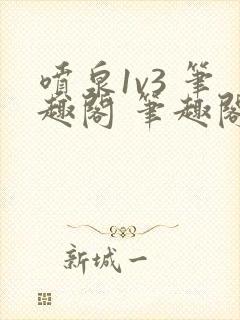 噴泉1v3 筆
趣閣 筆趣閣
新城一